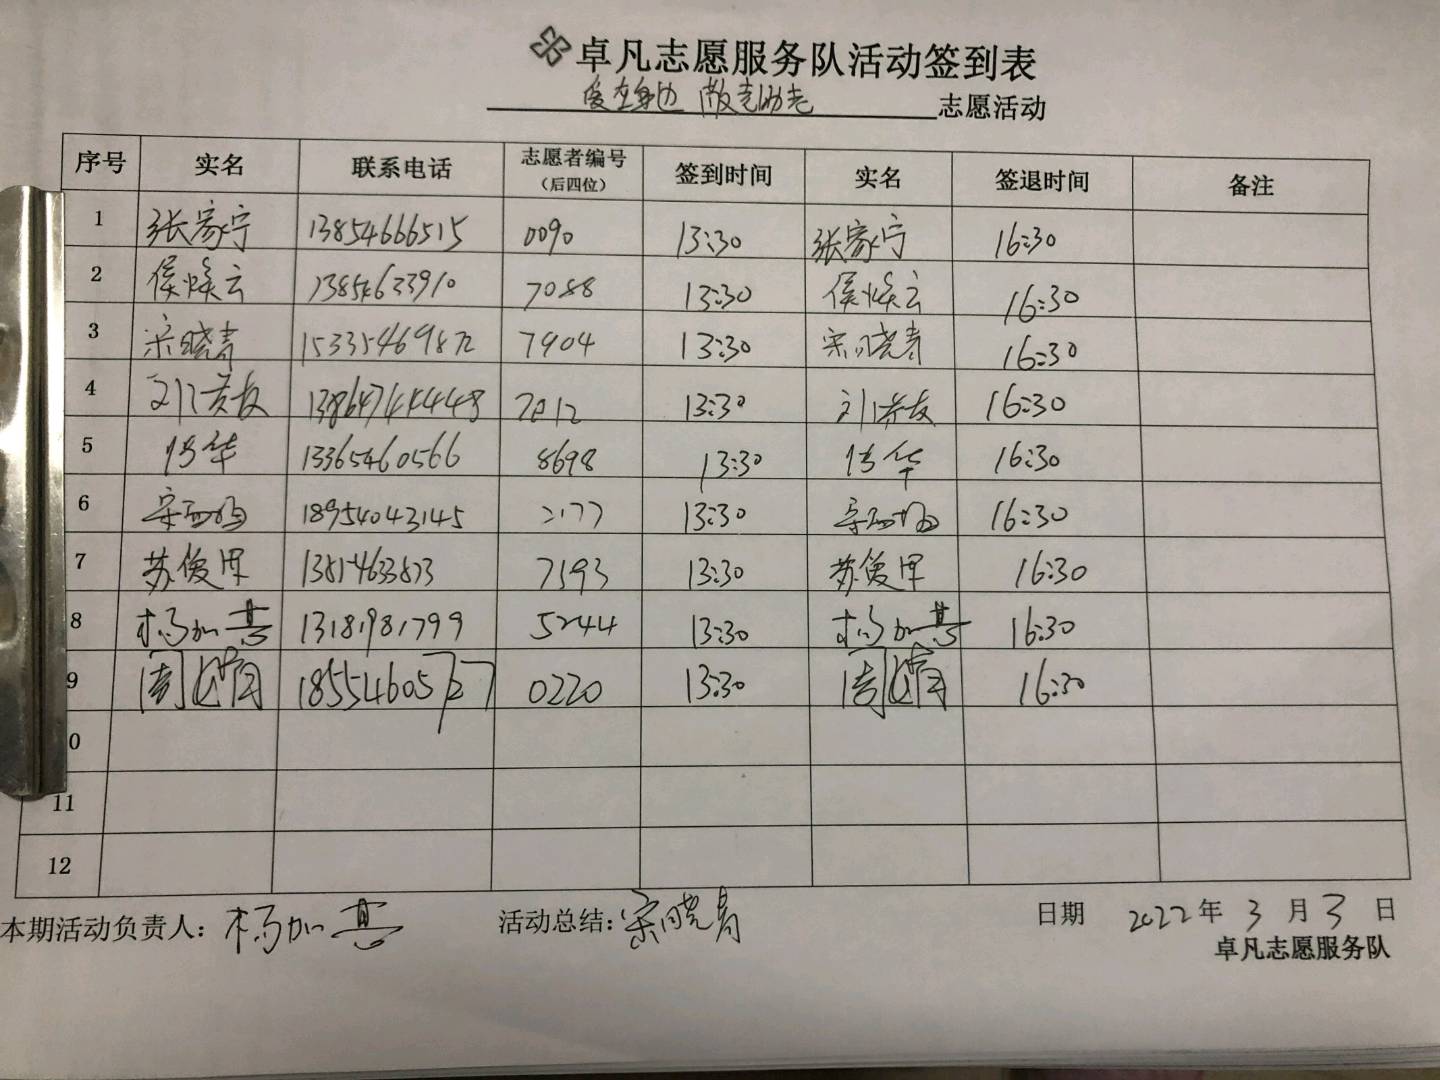 卓凡志愿服务队活动签到表
爱在身边 敬老助老 志愿活动
序号 实名 联系电话 志愿者编号（后四位） 签到时间 实名 签退时间 备注
1 张家宁 13854666515 0090 13:30 张家宁 16:30
2 侯焕云 13854633910 7088 13:30 侯焕云 16:30
3 宋晓青 15335469872 7904 13:30 宋晓青 16:30
4 13:30 16:30
5 传华 13365460566 8698 13:30 传华 16:30
6 18954043145 2177 13:30 16:30
7 苏俊 7193 13:30 苏俊 16:30
8 杨加 13181981799 5244 13:30 杨加 16:30
9 周 0220 13:30 周 16:30
0
11
12
本期活动负责人：杨加 活动总结：宋晓青 日期 2022年 3 月 3 日
卓凡志愿服务队